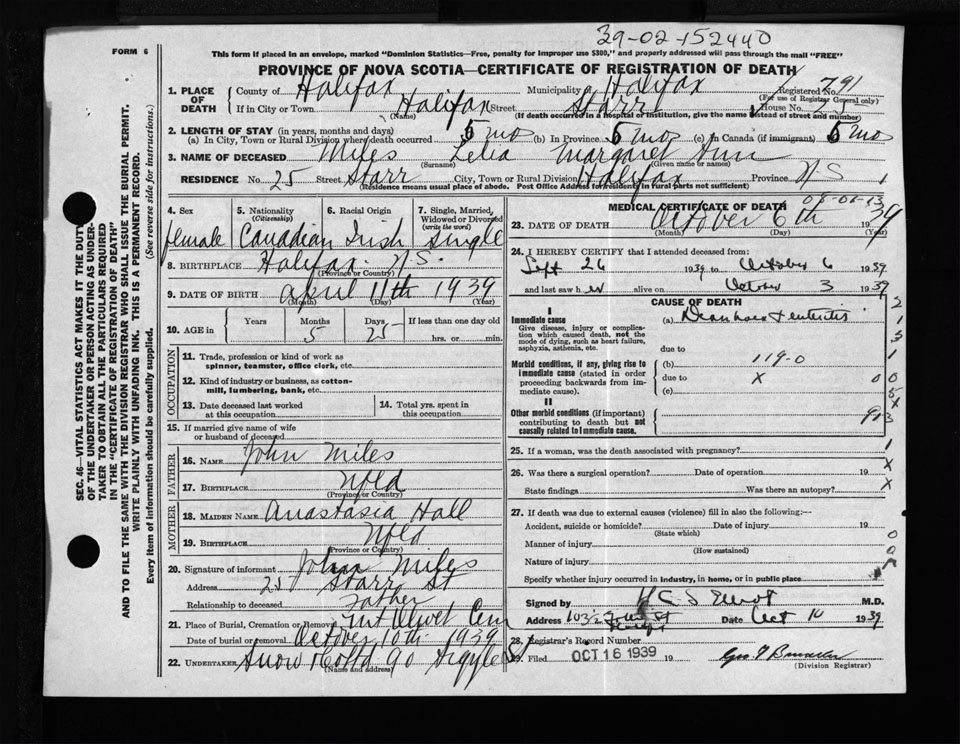 29-02-152440
FORM 6
This form if placed in an envelope, marked "Dominion Statistics—Free, penalty for improper use $300," and properly addressed will pass through the mail "FREE"
PROVINCE OF NOVA SCOTIA—CERTIFICATE OF REGISTRATION OF DEATH
1. PLACE OF DEATH
County of Halifax Municipality of Halifax Registered No. 791
(For use of Registrar General only)
If in City or Town Halifax Street Starr House No. 25
(Name) (If death occurred in a hospital or institution, give its name instead of street and number)
2. LENGTH OF STAY (in years, months and days)
(a) In City, Town or Rural Division where death occurred 5 mo (b) In Province 5 mo (c) In Canada (if immigrant) 5 mo
3. NAME OF DECEASED Miles Lelia Margaret Ann
(Surname) (Given name or names)
RESIDENCE No. 25 Street Starr City, Town or Rural Division Halifax Province N S
(Residence means usual place of abode. Post Office Address for residents in rural parts not sufficient)
4. Sex female
5. Nationality (Citizenship) Canadian
6. Racial Origin Irish
7. Single, Married, Widowed or Divorced (write the word) Single
8. BIRTHPLACE Halifax N.S.
(Province or Country)
9. DATE OF BIRTH April 11th 1939
(Month) (Day) (Year)
10. AGE in Years Months 5 Days 25 If less than one day old
hrs. or min.
OCCUPATION
11. Trade, profession or kind of work as spinner, teamster, office clerk, etc.
12. Kind of industry or business, as cotton-mill, lumbering, bank, etc.
13. Date deceased last worked at this occupation
14. Total yrs. spent in this occupation
15. If married give name of wife or husband of deceased
FATHER
16. Name John Miles
17. Birthplace Nfld
(Province or Country)
MOTHER
18. Maiden Name Anastasia Hall
19. Birthplace Nfld
(Province or Country)
20. Signature of informant John Miles
Address 25 Starr St
Relationship to deceased Father
21. Place of Burial, Cremation or Removal Mt Olivet Cem
Date of burial or removal October 10th 1939
22. Undertaker Snow & Co Ltd 90 Argyle St
(Name and address)
MEDICAL CERTIFICATE OF DEATH
23. DATE OF DEATH October 6th 1939
(Month) (Day) (Year)
24. I HEREBY CERTIFY that I attended deceased from:
Sept 26 1939 to October 6 1939
and last saw her alive on October 3 1939
CAUSE OF DEATH
I
Immediate cause
Give disease, injury or complication which caused death, not the mode of dying, such as heart failure, asphyxia, asthenia, etc.
(a) Diarrhoea & enteritis
due to
Morbid conditions, if any, giving rise to immediate cause (stated in order proceeding backwards from immediate cause).
(b) 119-0
due to x
(c)
II
Other morbid conditions (if important) contributing to death but not causally related to immediate cause.
25. If a woman, was the death associated with pregnancy?
26. Was there a surgical operation? Date of operation 19
State findings Was there an autopsy?
27. If death was due to external causes (violence) fill in also the following:—
Accident, suicide or homicide? Date of injury 19
(State which)
Manner of injury
(How sustained)
Nature of injury
Specify whether injury occurred in industry, in home, or in public place
Signed by H C S Elliot M.D.
Address Date Oct 10 1939
28. Registrar's Record Number
29. Filed OCT 16 1939 19
(Division Registrar)
SEC. 46—VITAL STATISTICS ACT MAKES IT THE DUTY
OF THE UNDERTAKER OR PERSON ACTING AS UNDER-
TAKER TO OBTAIN ALL THE PARTICULARS REQUIRED
IN THE "CERTIFICATE OF REGISTRATION OF DEATH"
AND TO FILE THE SAME WITH THE DIVISION REGISTRAR WHO SHALL ISSUE THE BURIAL PERMIT.
WRITE PLAINLY WITH UNFADING INK. THIS IS A PERMANENT RECORD.
Every item of information should be carefully supplied. (See reverse side for instructions.)